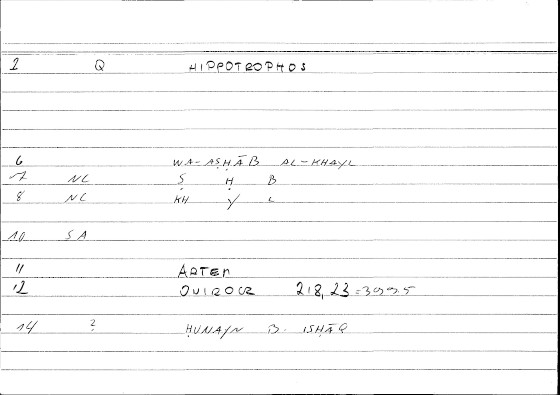 1 Q HIPPOTROPHOS
6 WA-AṢḤĀB AL-KHAYL
7 NC Ṣ Ḥ B
8 NC KH Y L
10 SA
11 ARTEM
12 ONIROCR 218,23=3995
14 ? ḤUNAYN B. ISḤĀQ